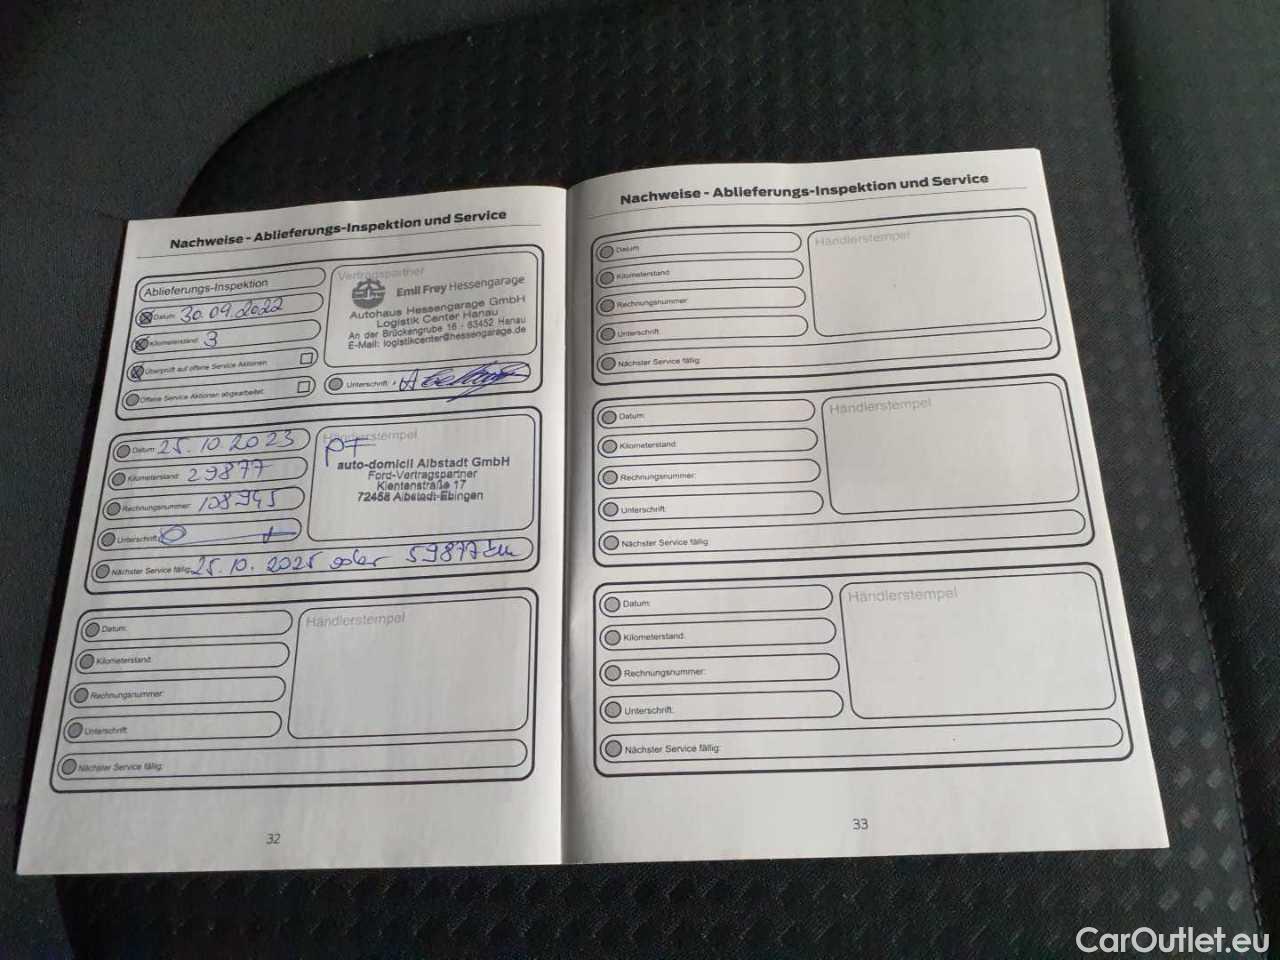 Nachweise - Ablieferungs-Inspektion und Service
Ablieferungs-Inspektion
Datum: 30.09.2022
Kilometerstand: 3
Überprüft auf offene Service Aktionen:
Offene Service Aktionen abgearbeitet:
Vertragspartner
Emil Frey Hessengarage
Autohaus Hessengarage GmbH
Logistik Center Hanau
An der Brückengrube 16 - 63452 Hanau
E-Mail: logistikcenter@hessengarage.de
Unterschrift:
Datum: 25.10 2023
Kilometerstand: 29877
Rechnungsnummer: 108945
Unterschrift:
Händlerstempel
auto-domicil Albstadt GmbH
Ford-Vertragspartner
Kientenstraße 17
72458 Albstadt-Ebingen
Nächster Service fällig: 25.10.2025 oder 59877 km
Datum:
Kilometerstand:
Rechnungsnummer:
Unterschrift:
Händlerstempel
Nächster Service fällig:
32
Nachweise - Ablieferungs-Inspektion und Service
Datum:
Kilometerstand:
Rechnungsnummer:
Unterschrift:
Händlerstempel
Nächster Service fällig:
Datum:
Kilometerstand:
Rechnungsnummer:
Unterschrift:
Händlerstempel
Nächster Service fällig:
Datum:
Kilometerstand:
Rechnungsnummer:
Unterschrift:
Händlerstempel
Nächster Service fällig:
33
CarOutlet.eu